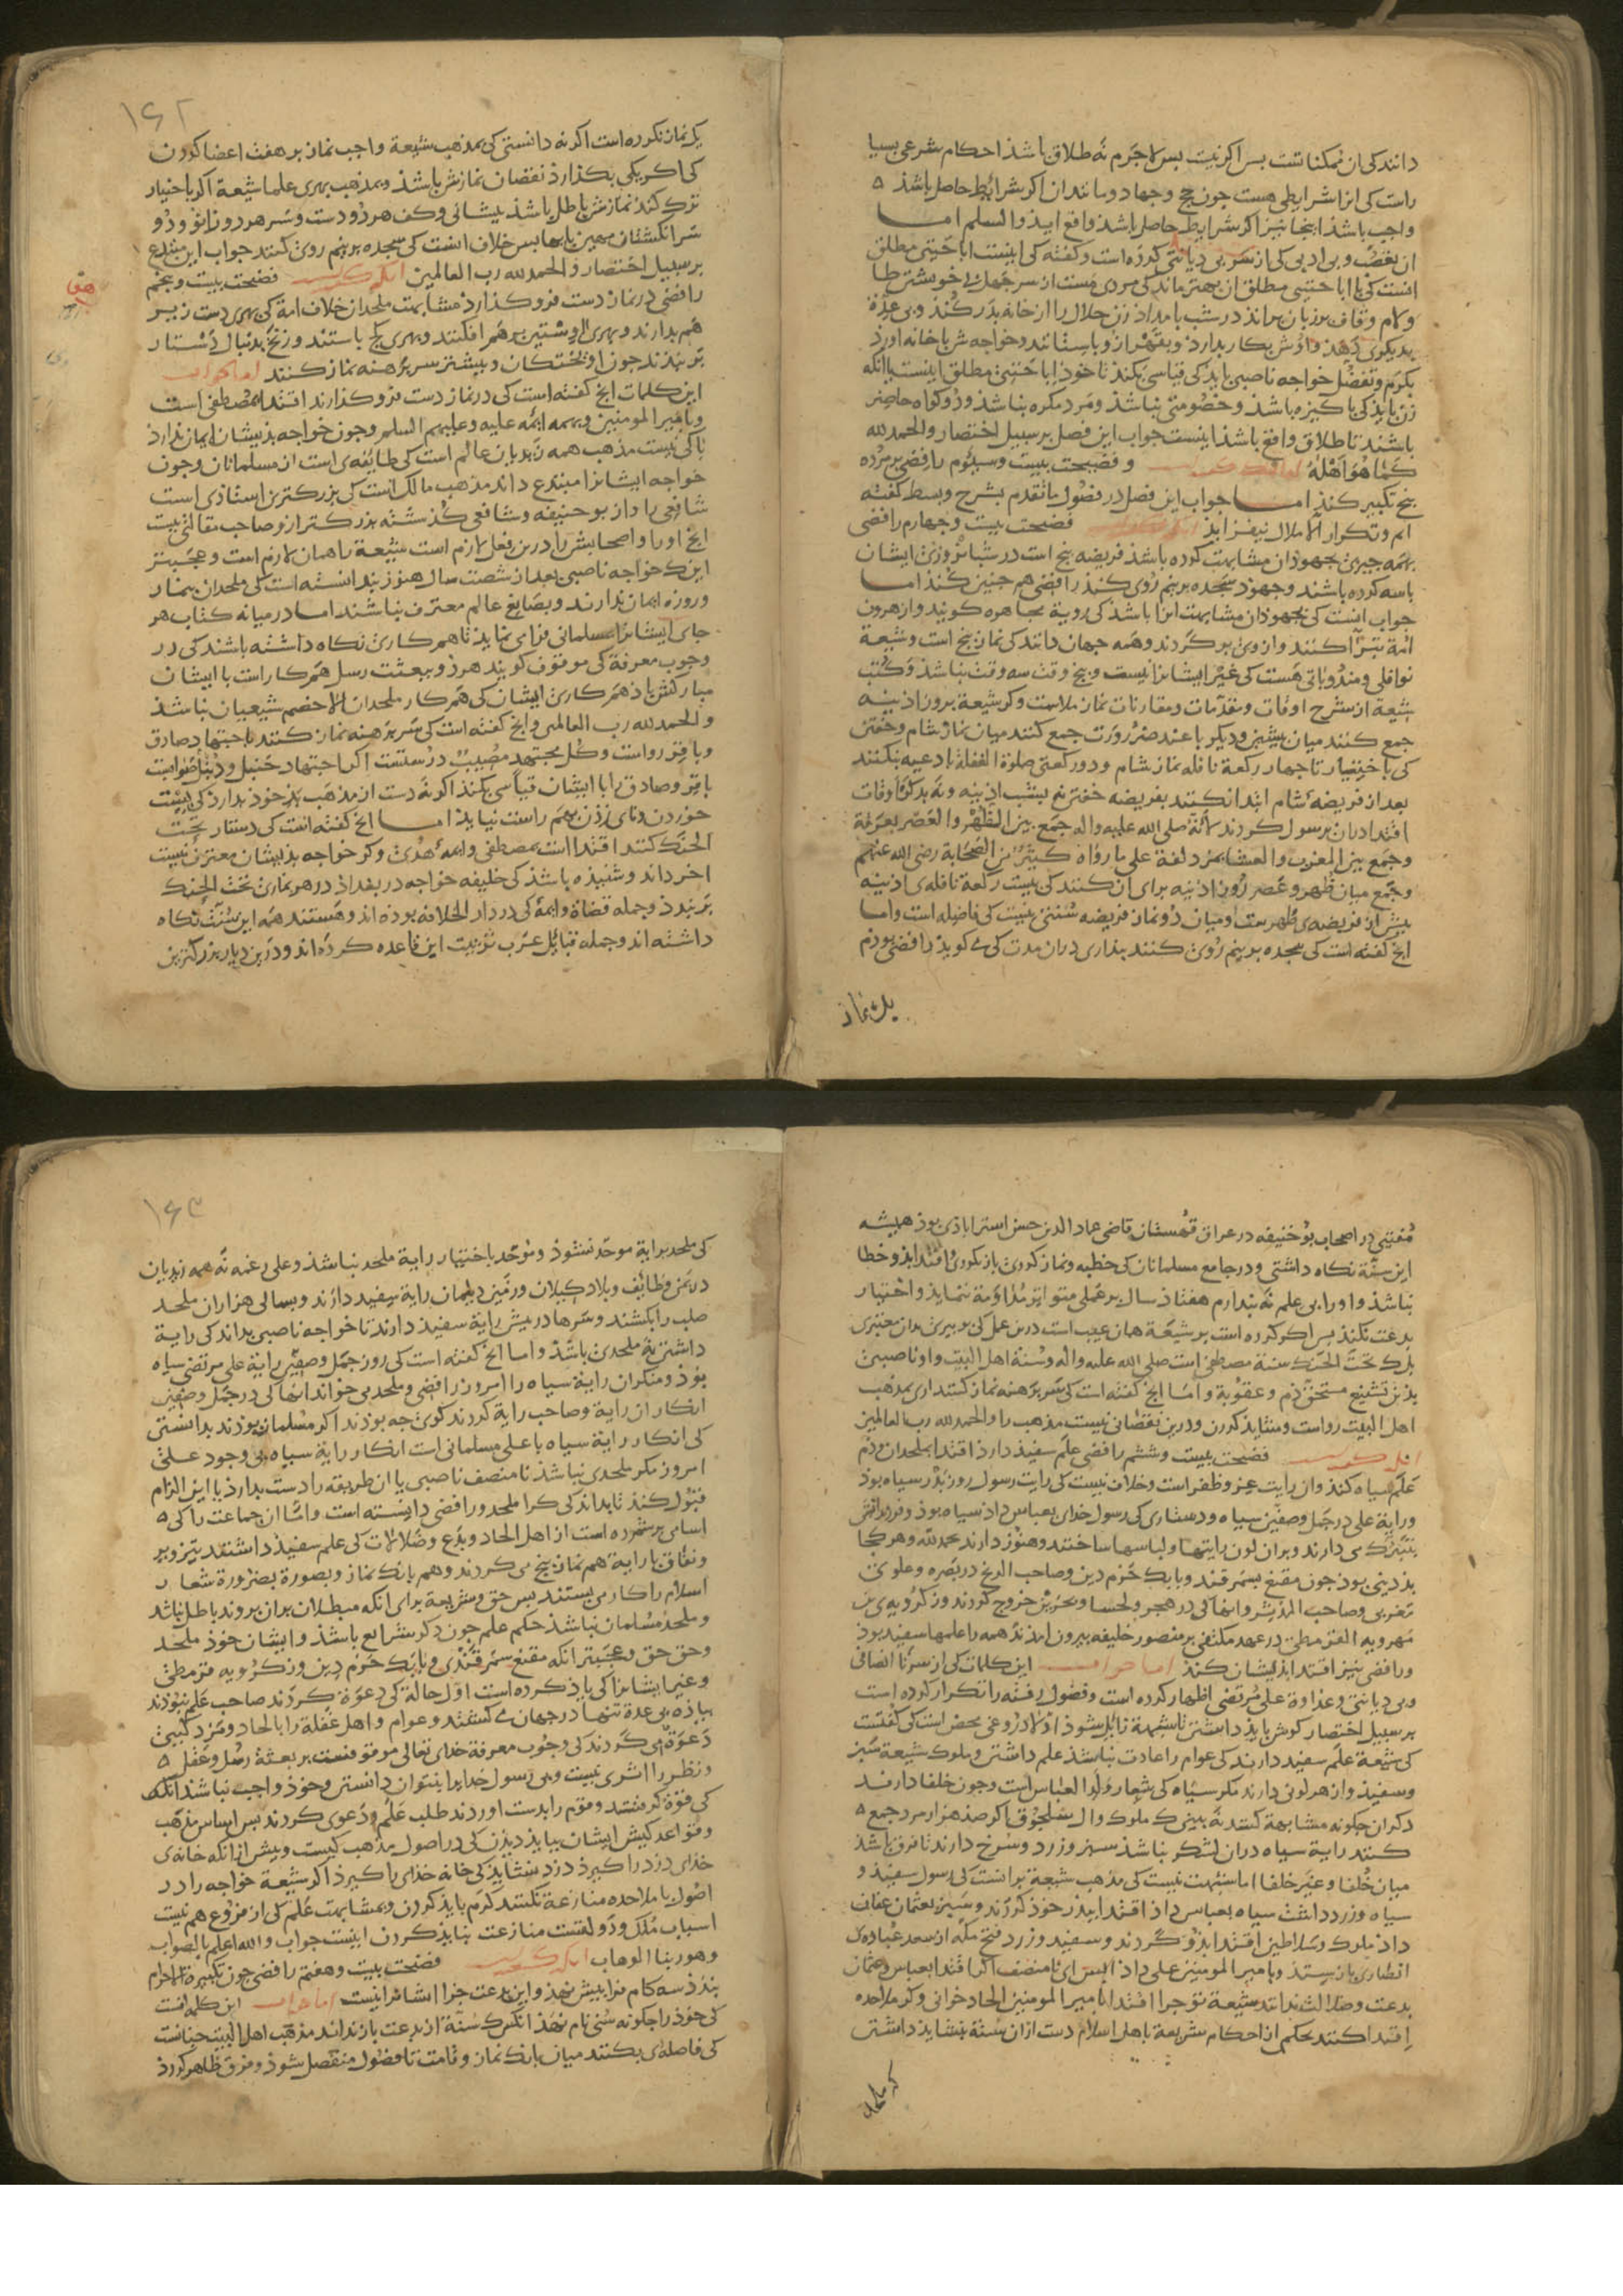 دانند کی ان ممکنا تست بس اکر نیت بس لاجرم نه طلاق باشذ احکام شرعی بسیا
راست کی انرا شرایطی هست جون حج و جهاد و مانند ان اکر شرائط حاصل باشذ
واجب باشذ اینجا نیز اکر شرایط حاصل باشذ واقع ایذ والسلم اما
ان بغضب و بی ادبی کی از سر بی دیانتی کرده است و کفته کی اینست اباحتی مطلق
انست کی با اباحتی مطلق ان بهتر ماند کی مردی مست از سر جهل بی خویشتن طا
و لام و قاف بر زبان براند در شب بامداذ زن حلال را از خانه بدر کند و بی عدة
بدیکری دهذ
بکرم و تفضل خواجه ناصبی بایذ کی قیاسی بکند تا خوذ اباحتی مطلق اینست یا انکه
زن بایذ کی باکیزه باشذ و خصومتی نباشذ و مرد مکره نباشذ و دو کواه حاضر
باشند تا طلاق واقع باشذ اینست جواب این فصل بر سبیل اختصار والحمد لله
کما هو اهله و فضیحت بیست و سیوم رافضی بر مرده
بنج تکبیر کند اما جواب این فصل در فصول ما تقدم بشرح و بسط کفته
ایم و تکرار الا ملال نیفزایذ فضیحت بیست و جهارم رافضی
بهمه جیزی بجهوذان مشابهت کرده باشذ فریضه بنج است در شبانروزی ایشان
باسه کرده باشند و جهوذ سجده بر نیم روی کند رافضی هم جنین کند اما
جواب انست کی بجهوذان مشابهت انرا باشذ کی رویة مجاهره کویند و از هرون
ائمة تبرا کنند و از وی بر کردند و همه جهان دانند کی نماز بنج است و شیعة
نوافلی و مندوباتی هست کی غیر ایشانرا نیست و بنج وقت سه وقت نباشذ و کتب
شیعة از شرح اوقات و مقدمات و مقارنات نماز ملاست و کر شیعة بروز اذینه
جمع کنند میان بیشین و دیکر یا عند ضرورت جمع کنند میان نماز شام و خفتن
کی باختیار تا جهار رکعة نافله نماز شام و دو رکعتی صلوة الغفلة با ادعیه نکنند
بعد از فریضه شام ابتدا نکنند بفریضه خفتن
اقتدا دران برسول کردند لانه صلی الله علیه واله جمع بین الظهر والعصر بعرفة
و جمع بین المغرب والعشا بمزدلفة علی ما رواه کثیر من الصحابة رضی الله عنهم
و جمع میان ظهر و عصر روز اذینه برای ان کنند کی بیست رکعة نافله ی اذینه
بیش از فریضه ی ظهرست و میان دو نماز فریضه سنتی نیست کی فاصله است واما
انج کفته است کی سجده بر نیم روی کنند بنداری دران مدت کی می کویذ رافضی بوذم
یک نماز
۱۶۲
یک نماز نکرده است اکرنه دانستی کی بمذهب شیعة واجب نماز بر هفت اعضا کردن
کی اکر یکی بکذارد نقصان نمازش باشذ و بمذهب بهری علما شیعة اکر باختیار
ترک کند نمازش باطل باشذ بیشانی و کف هر دو دست و سر هر دو زانو و دو
سر انکشتان مهین باها بس خلاف انست کی سجده بر نیم روی کنند جواب این مبتدع
بر سبیل اختصار والحمد لله رب العالمین فضیحت بیست و بنجم
رافضی در نماز دست فرو کذارد مشابهت ملحدان خلاف امة کی بهری دست زبر
هم بدارند
بر بندند جون اویختکان و بیشتر سر برهنه نماز کنند اما جواب
این کلمات انج کفته است کی در نماز دست فرو کذارند اقتدا بمصطفی است
و بامیر المومنین و بهمه ایمه علیه و علیهم السلم و جون خواجه بذیشان ایمان ندارد
باکی نیست مذهب همه زیدیان عالم است کی طایفه ی است از مسلمانان و جون
خواجه ایشانرا مبتدع داند مذهب مالک است کی بزرکترین استاذی است
شافعی را و از بو حنیفه و شافعی کذشته بزرکتر ازو صاحب مقالتی نیست
انج او را و اصحابش را درین فعل لازم است شیعة را همان لازم است و عجبتر
اینک خواجه ناصبی بعد از شصت سال هنوز بندانسته است کی ملحدان بنماز
و روزه ایمان ندارند و بصانع عالم معترف نباشند اما در میانه کتاب هر
جای ایشانرا مسلمانی فرا می نمایذ تا همر کاری نکاه داشته باشند کی در
وجوب معرفة کی موقوف کویند هر دو ببعثت رسل همر کار است با ایشان
مبارکش باذ همر کاری ایشان کی همر کار ملحدان الا خصم شیعیان نباشذ
والحمد لله رب العالمین و انج کفته است کی سر برهنه نماز کنند باجتهاد صادق
و باقر رواست و کل مجتهد مصیب درستست
باقر و صادق را با ایشان قیاسی بکند اکرنه دست از مذهب بذ خوذ بدارد
خوردن و نای زدن بهم راست نیایذ اما انج کفته است کی دستار تحت
الحنک کنند اقتدا است بمصطفی و ایمه هدی و کر خواجه بذیشان معترف نیست
اخر داند و شنیذه باشذ کی خلیفه خواجه در بغداذ در هر نمازی تحت الحنک
بر بندد و جمله قضاة و ایمه کی در دار الخلافه بوذه اند و هستند همه این سنت نکاه
داشته اند و جمله قبایل عرب این قاعده کرده اند و درین دیار بزرکترین
مفتیی در اصحاب بو حنیفه در عراق قهستان قاضی عماد الدین حسن استراباذی بوذ همیشه
این سنة نکاه داشتی و در جامع مسلمانان کی خطبه و نماز کردی باز نکردی
نباشذ و او را بی علم نه بندارم هفتاذ سال بر عملی متواتر مداومة نماید و اختیار
بدعت نکند بس اکر کرده است بر شیعة همان عیب است درین عمل
بلک تحت الحنک سنة مصطفی است صلی الله علیه واله و سنة اهل البیت و او ناصبیی
بذین تشنیع مستحق ذم و عقوبة واما انج کفته است کی سر برهنه نماز کنند اری بمذهب
اهل البیت رواست و منشایذ کردن و درین نقصانی نیست مذهب را والحمد لله رب العالمین
فضیحت بیست و ششم رافضی علم سفیذ دارد اقتدا بملحدان و ذم
علم سیاه کند و ان رایت عز و ظفر است و خلاف نیست کی رایت رسول روز بدر سیاه بوذ
و رایة علی در جمل و صفین سیاه و دستاری کی رسول خدای بعباس داذ سیاه بوذ
بتبرک می دارند و بران لون رایتها و لباسها ساختند و هنوز دارند بحمد لله و هر کجا
بذ دینی بوذ جون مقنع بسمرقند و بابک خرم دین و صاحب الزنج در بصره و علوی
مغربی و صاحب المدثر و انها کی در هجر و لحسا و بحرین خروج کردند و زکرویه ی بن
مهرویه القرمطی در عهد مکتفی بر منصور خلیفه بیرون امذند همه را علمها سفیذ بوذ
و رافضی نیز اقتدا بذیشان کند اما جواب این کلمات کی از سر نا انصافی
و بی دیانتی و عداوة علی مرتضی اظهار کرده است و فصول رفته را تکرار کرده است
بر سبیل اختصار کوش بایذ داشتن تا شبهة زایل شوذ اولا دروغی محض است کی کفتست
کی شیعة علم سفیذ دارند کی عوام را عادت نباشذ علم داشتن و ملوک شیعة سبز
و سفیذ و از هر لونی دارند مکر سیاه کی شعار ولد العباس است و جون خلفا دارند
دکران جکونه مشابهة کنند نه بینی ک ملوک و ال سلجوق اکر صذ هزار مرد جمع
کنند رایة سیاه دران لشکر نباشذ سبز و زرد و سرخ دارند تا فرق باشذ
میان خلفا و غیر خلفا اما شبهت نیست کی مذهب شیعة برانست کی رسول سفیذ و
سیاه و زرد داشت سیاه بعباس داذ اقتدا ببذر خوذ کردند و سبز بعثمان عفان
داذ ملوک و سلاطین اقتدا بذو کردند و سفیذ و زرد فتح مکه از سعد عباده ی
انصاری باز ستذ و بامیر المومنین علی داذ
بدعت و ضلالت نداند شیعة تو جرا اقتدا بامیر المومنین الحاد خوانی و کر ملاحده
اقتدا کنند بحکم ان احکام شریعة باهل اسلام دست از ان سنة بنشایذ داشتن
کی ملحد
۱۶۳
کی ملحد برایة موحد نشوذ و موحد باختیار رایة ملحد نباشذ و علی رغمه نه همه زیدیان
در یمن و طائف و بلاد کیلان و زمین دیلمان رایة سفیذ دارند و بسالی هزاران ملحد
صلب را بکشند و سرها در بیش رایة سفیذ دارند تا خواجه ناصبی بداند کی رایة
داشتن نه ملحدی باشذ واما انج کفته است کی روز جمل و صفین رایة علی مرتضی سیاه
بوذ و منکران رایة سیاه را امروز رافضی و ملحد می خواند انها کی در جمل و صفین
انکار ان رایة و صاحب رایة کردند کوئی جه بوذند اکر مسلمان بوذند بدانستی
کی انکار رایة سیاه با علی مسلمانی است انکار رایة سیاه بی وجود علی
امروز مکر ملحدی نباشذ تا منصف ناصبی یا ان طریقه را دست بدارد یا این الزام
قبول کند تا بداند کی کرا ملحد و رافضی دانسته است واما ان جماعت را کی
اسامی بر شمرده است از اهل الحاد و بدع و ضلالات کی علم سفیذ داشتند
و نفاق با رایة هم نماز بنج می کردند و هم بانک نماز و بصورة بضرورة شعار
اسلام را کار می بستند بس حق و شریعة برای انکه مبطلان بران بروند باطل نباشذ
و ملحد مسلمان نباشذ حکم علم جون دکر شرایع باشذ و ایشان خوذ ملحد
و حق حق و عجبتر انکه مقنع سمرقندی و بابک خرم دین و زکرویه قرمطی
و غیر ایشانرا کی یاذ کرده است اول حالة کی دعوة کردند صاحب علم نبوذند
بیاذه بی عدة تنها در جهان می کشتند و عوام و اهل غفلة را بالحاد و مزدکیی
دعوة می کردند کی وجوب معرفة خدای تعالی موقوفست بر بعثة رسل و عقل
و نظر را اثری نیست و بی رسول خدایرا بنتوان دانستن و خوذ واجب نباشذ انکه
کی قوة کرفتند و قوم را بدست اوردند طلب علم و دعوی کردند بس اساس مذهب
و قواعد کیش ایشان ببایذ دیذن کی در اصول مذهب کیست و بیش از انکه خانه ی
خدای دزد را کیرذ دزد بنشایذ کی خانه خدای را کیرذ اکر شیعة خواجه را در
اصول با ملاحده منازعة نکنند کرم بایذ کردن و بمشابهت علم کی از فروع هم نیست
اسباب ملک و دولتست منازعت نبایذ کردن اینست جواب والله اعلم بالصواب
و هو ربنا الوهاب فضیحت بیست و هفتم رافضی جون تکبیرة الاحرام
بندذ سه کام فرا بیش نهذ و این بدعت جز ایشانرا نیست اما جواب این کلمه انست
کی خوذ را جکونه سنی نام نهذ انکس ک سنة از بدعت باز نداند مذهب اهل البیت جنانست
کی فاصله ی بکنند میان بانک نماز و قامت تا فصول منفصل شوذ و فرق ظاهر کردذ